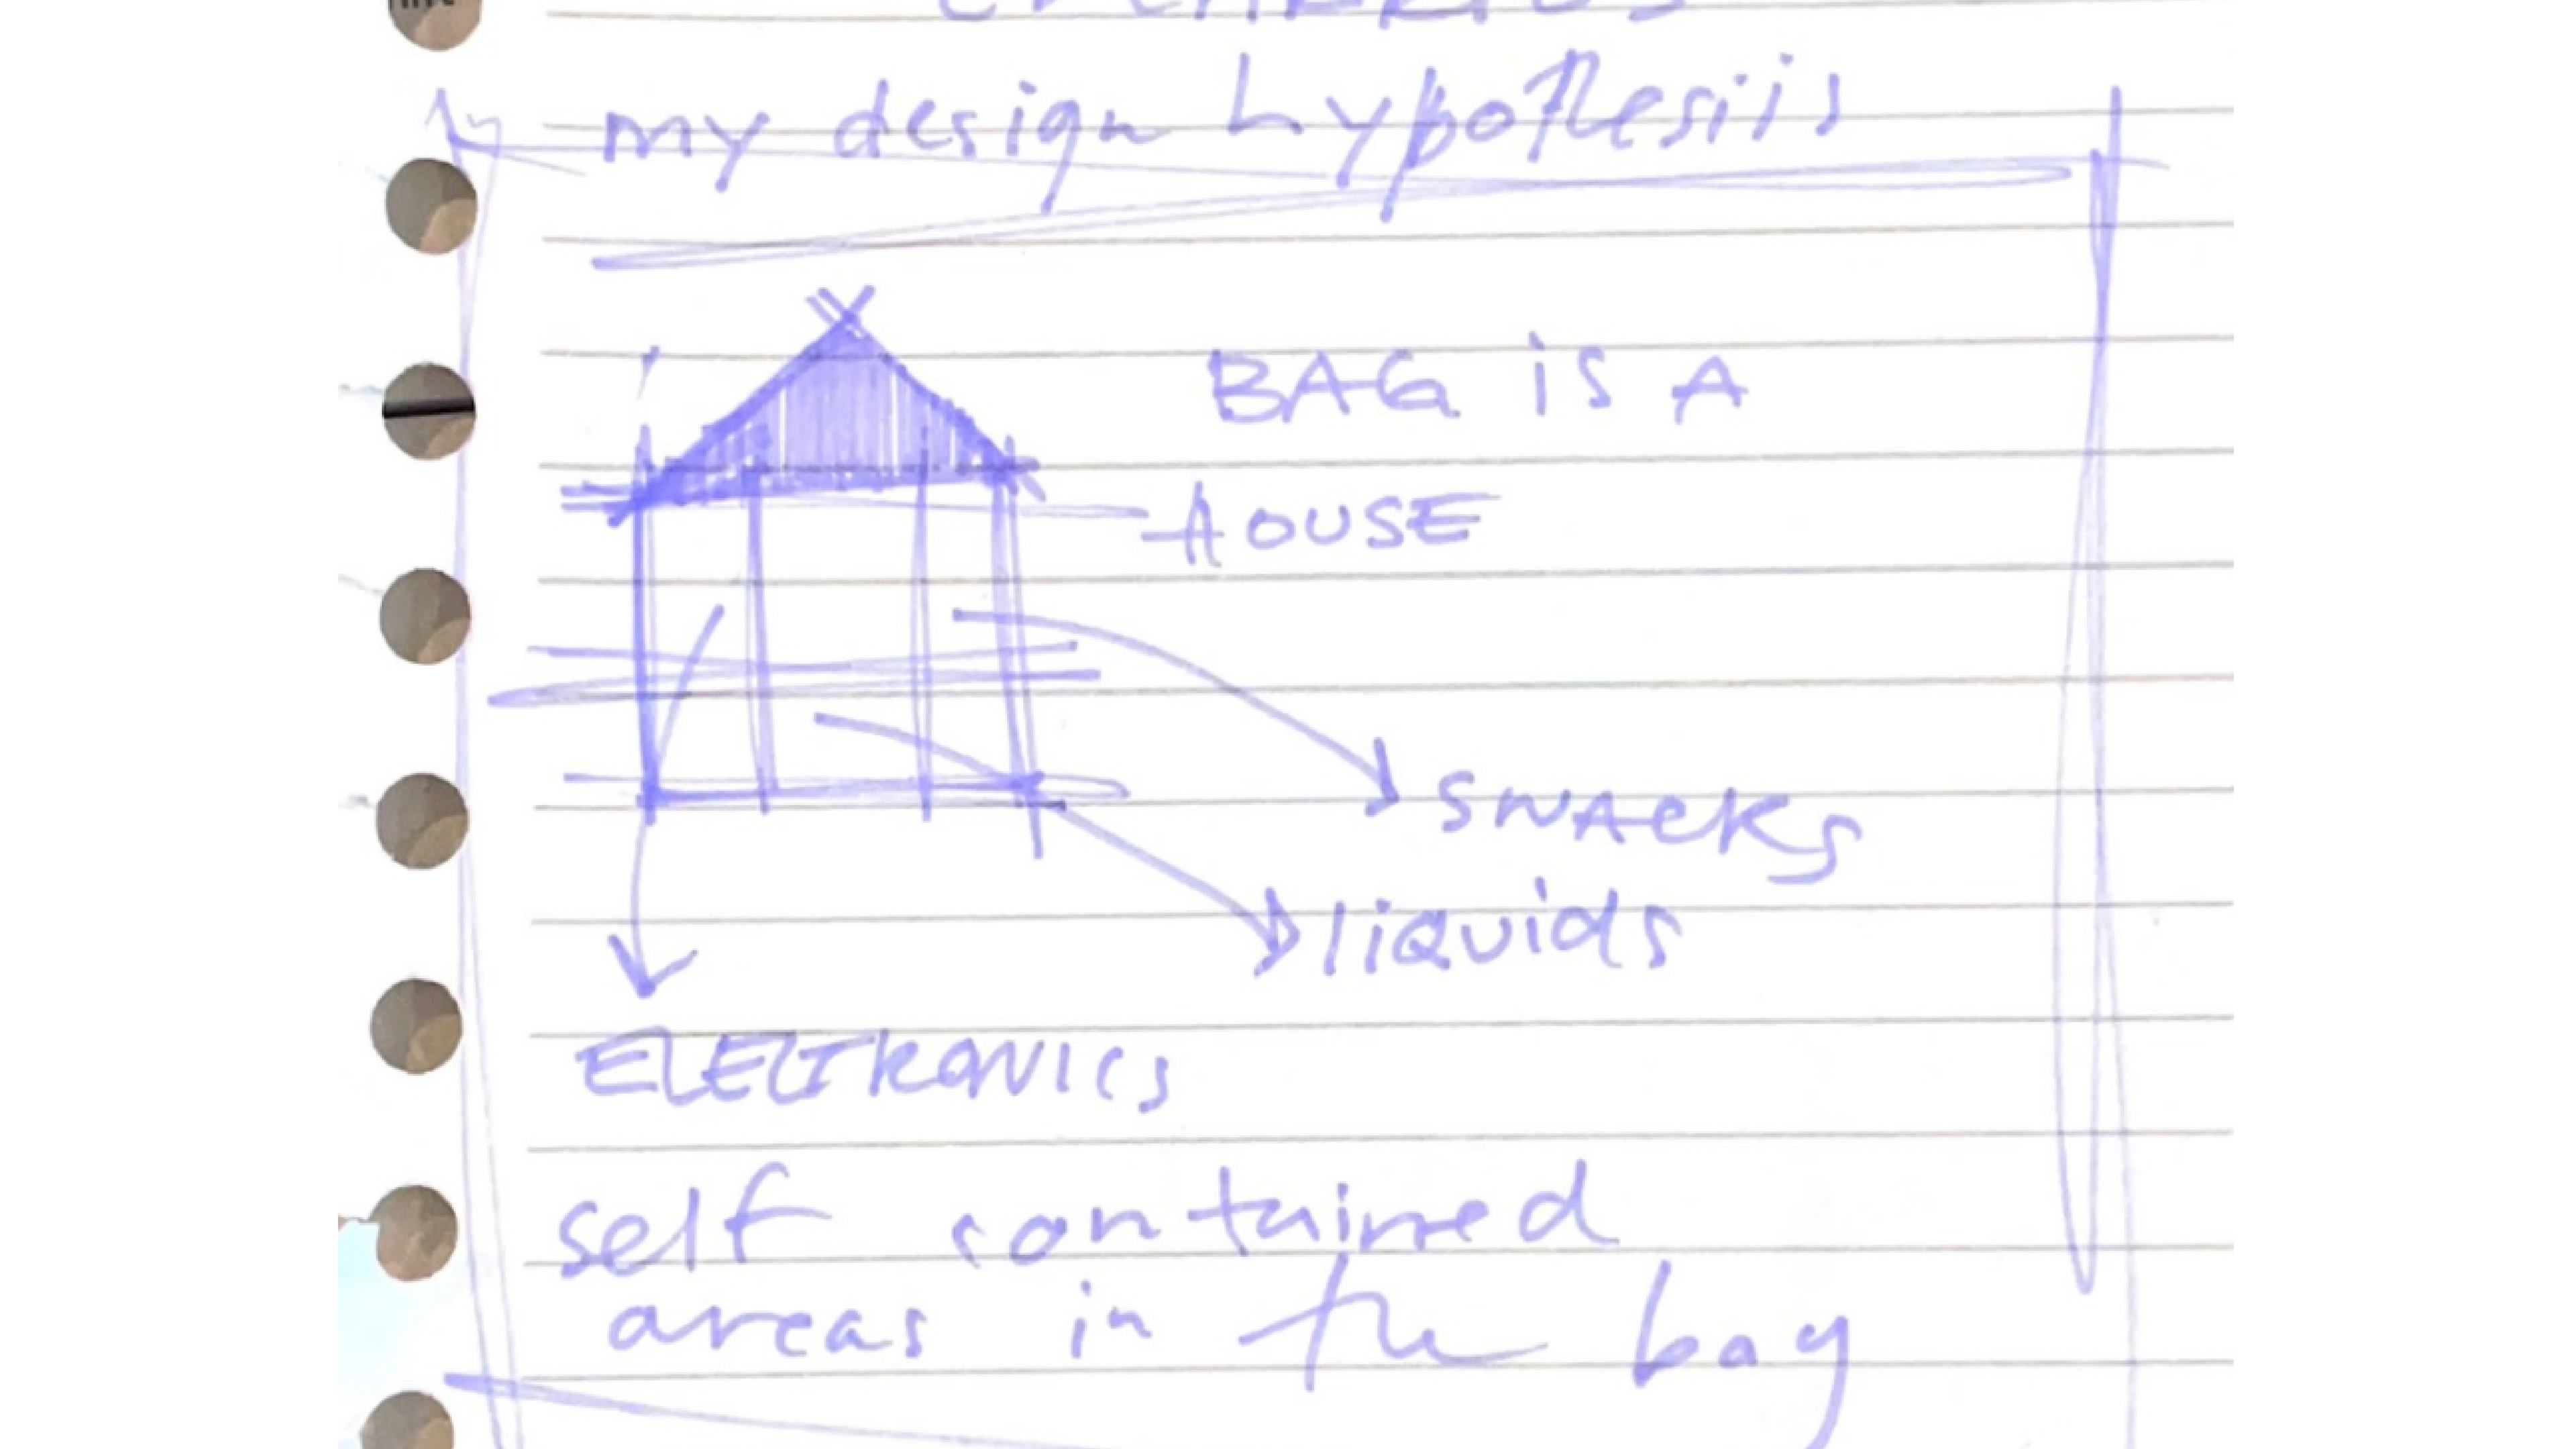 my design hypothesiis
BAG is A
HOUSE
SNAcKs
liquids
ELECTRONICS
self contained
areas in the bag